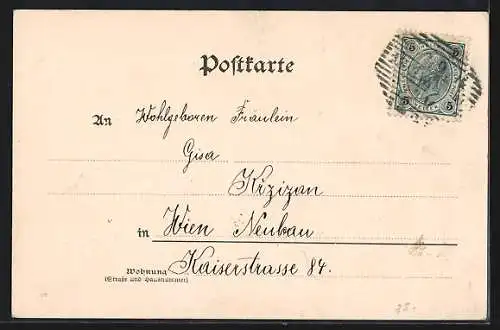 Postkarte
5 5
An Wohlgeboren Fräulein
Gisa
Krzizan
in Wien Neubau
Wohnung Kaiserstrasse 84.
(Straße und Hausnummer)